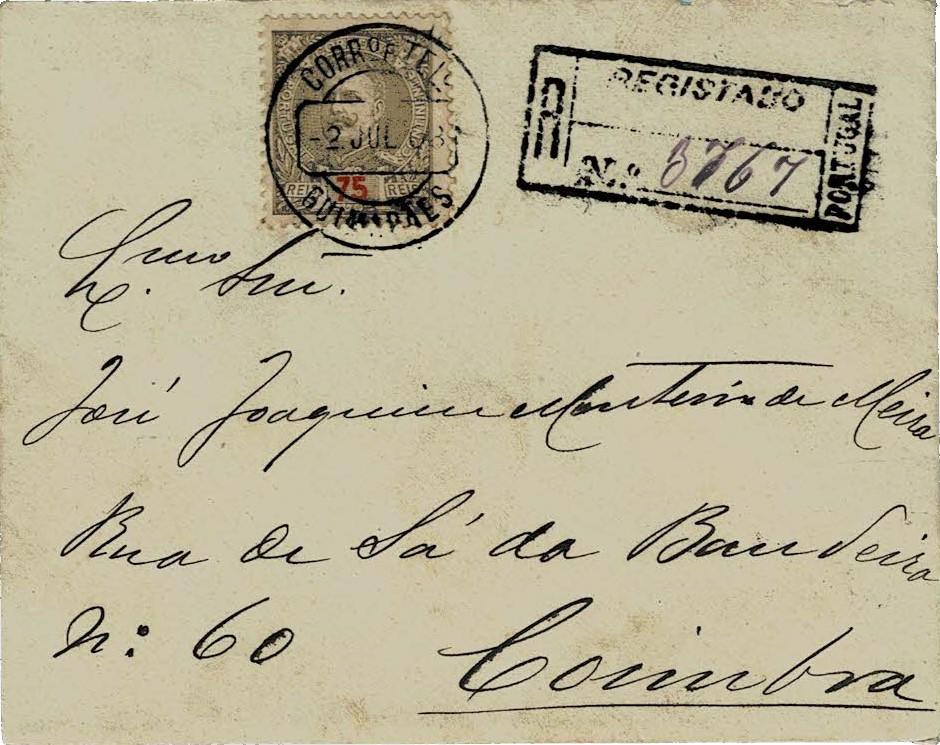 CORRos E TEL
-2 JUL 08
GUIMARÃES
75
REIS REIS
R
REGISTADO
N.o 3767
PORTUGAL
Snr.
José Joaquim Monteiro de Meira
Rua de Sá da Bandeira
N.º 60
Coimbra